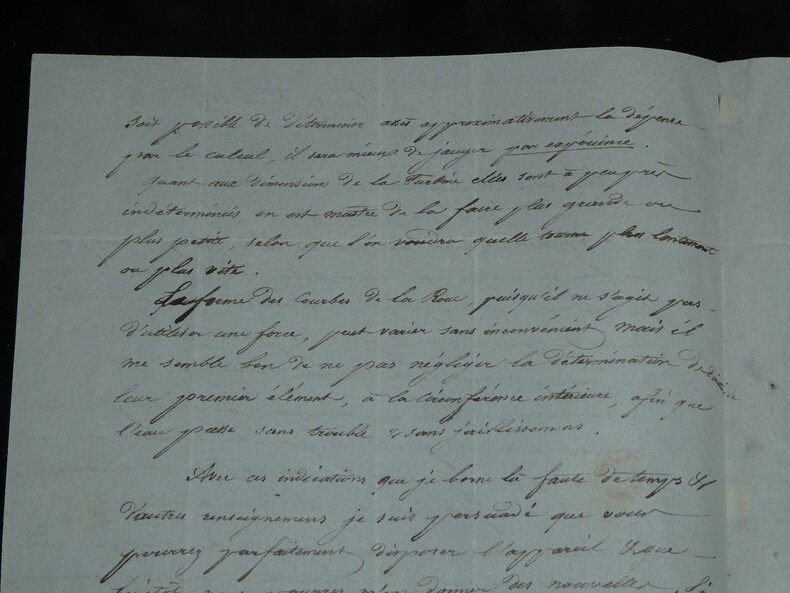 soit possible de déterminer assez approximativement la dépense
par le calcul, il sera mieux de jauger par expérience.
quant aux dimensions de la Turbine elles sont à peu près
indéterminées on est maitre de la faire plus grande ou
plus petite, selon que l'on voudra quelle tourne plus lentement
ou plus vite.
La forme des Courbes de la Roue, puisqu'il ne s'agit pas
d'utiliser une force, peut varier sans inconvénient, mais il
me semble bon de ne pas négliger la détermination de
leur premier élément, à la circonférence intérieure, afin que
l'eau passe sans trouble & sans jaillissemens.
Avec ces indications que je borne là faute de temps &
d'autres renseignemens je suis persuadé que vous
pourrez parfaitement disposer l'appareil & que
bientôt vous pourrez m'en donner des nouvelles.